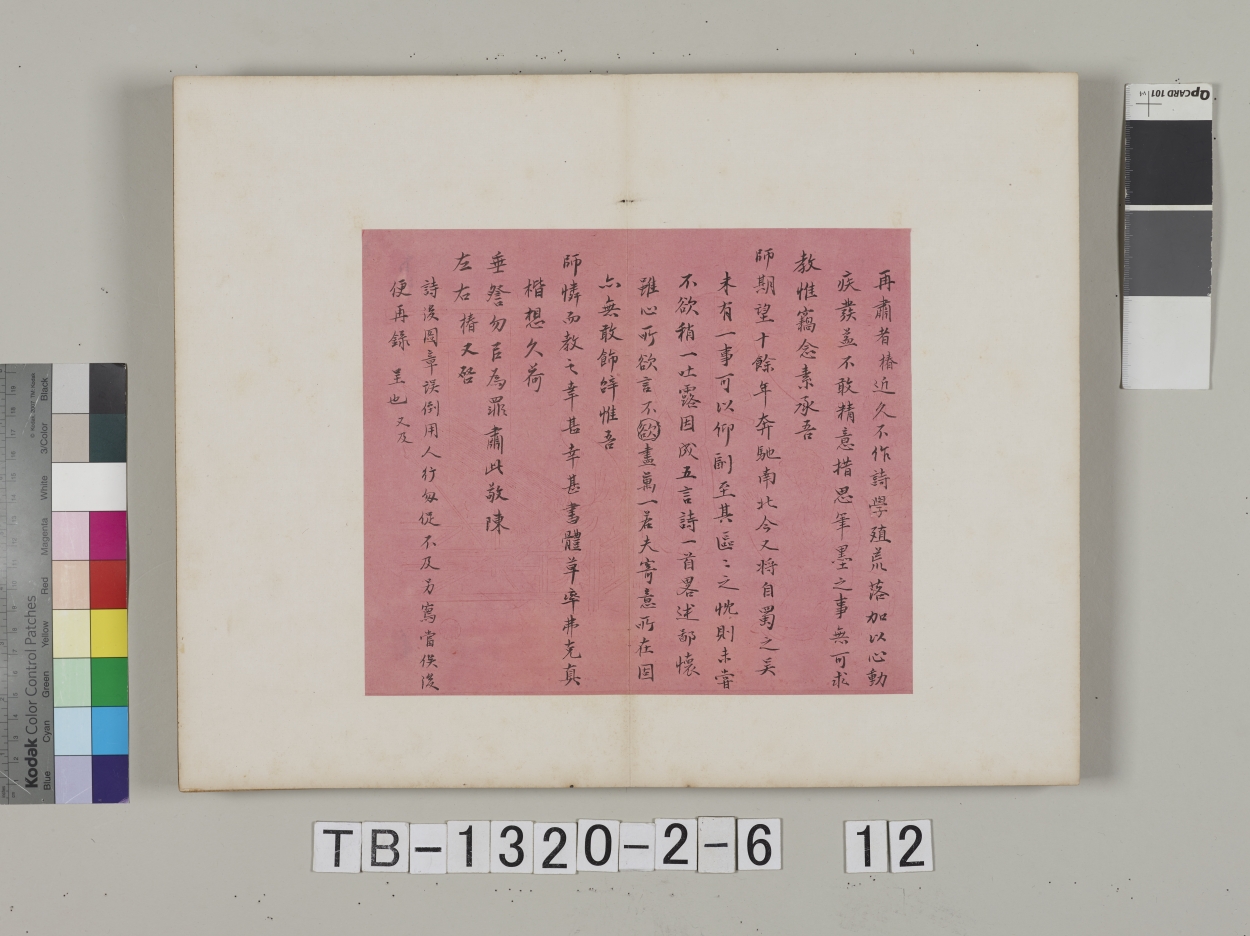 再肅者椿近久不作詩學殖荒落加以心動
疾發益不敢精意措思筆墨之事無可求
教惟竊念素承吾
師期望十餘年奔馳南北今又將自蜀之吴
未有一事可以仰副至其區〻之忱則未嘗
不欲稍一吐露因成五言詩一首畧述鄙懷
雖心所欲言不欲盡萬一若夫寄意所在固
亦無敢飾辭惟吾
師憐而教之幸甚幸甚書體草率弗克真
楷想久荷
垂詧勿㠯為罪肅此敬陳
左右椿又啓
詩後圖章誤倒用人行匆促不及另寫當俟後
便再錄呈也又及
TB-1320-2-6 12
Kodak Color Control Patches
© Kodak
Blue Cyan Green Yellow Red Magenta White 3/Color Black
QPCARD 101